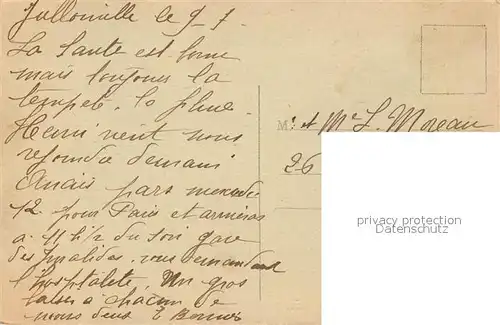 Jullouville le 9 7.
La Santé est bonne
mais toujours la
tempete. la pluie.
Henri vient nous
rejoindre demain
Anais pars mercredi
12 pour Paris et arriveras
a 11 h 1/2 du soir gare
des Invalides. vous demandant
l'hospitalete. Un gros
baiser à chacun de
nous deux E
M. et Me L. Moreau
26
privacy protection